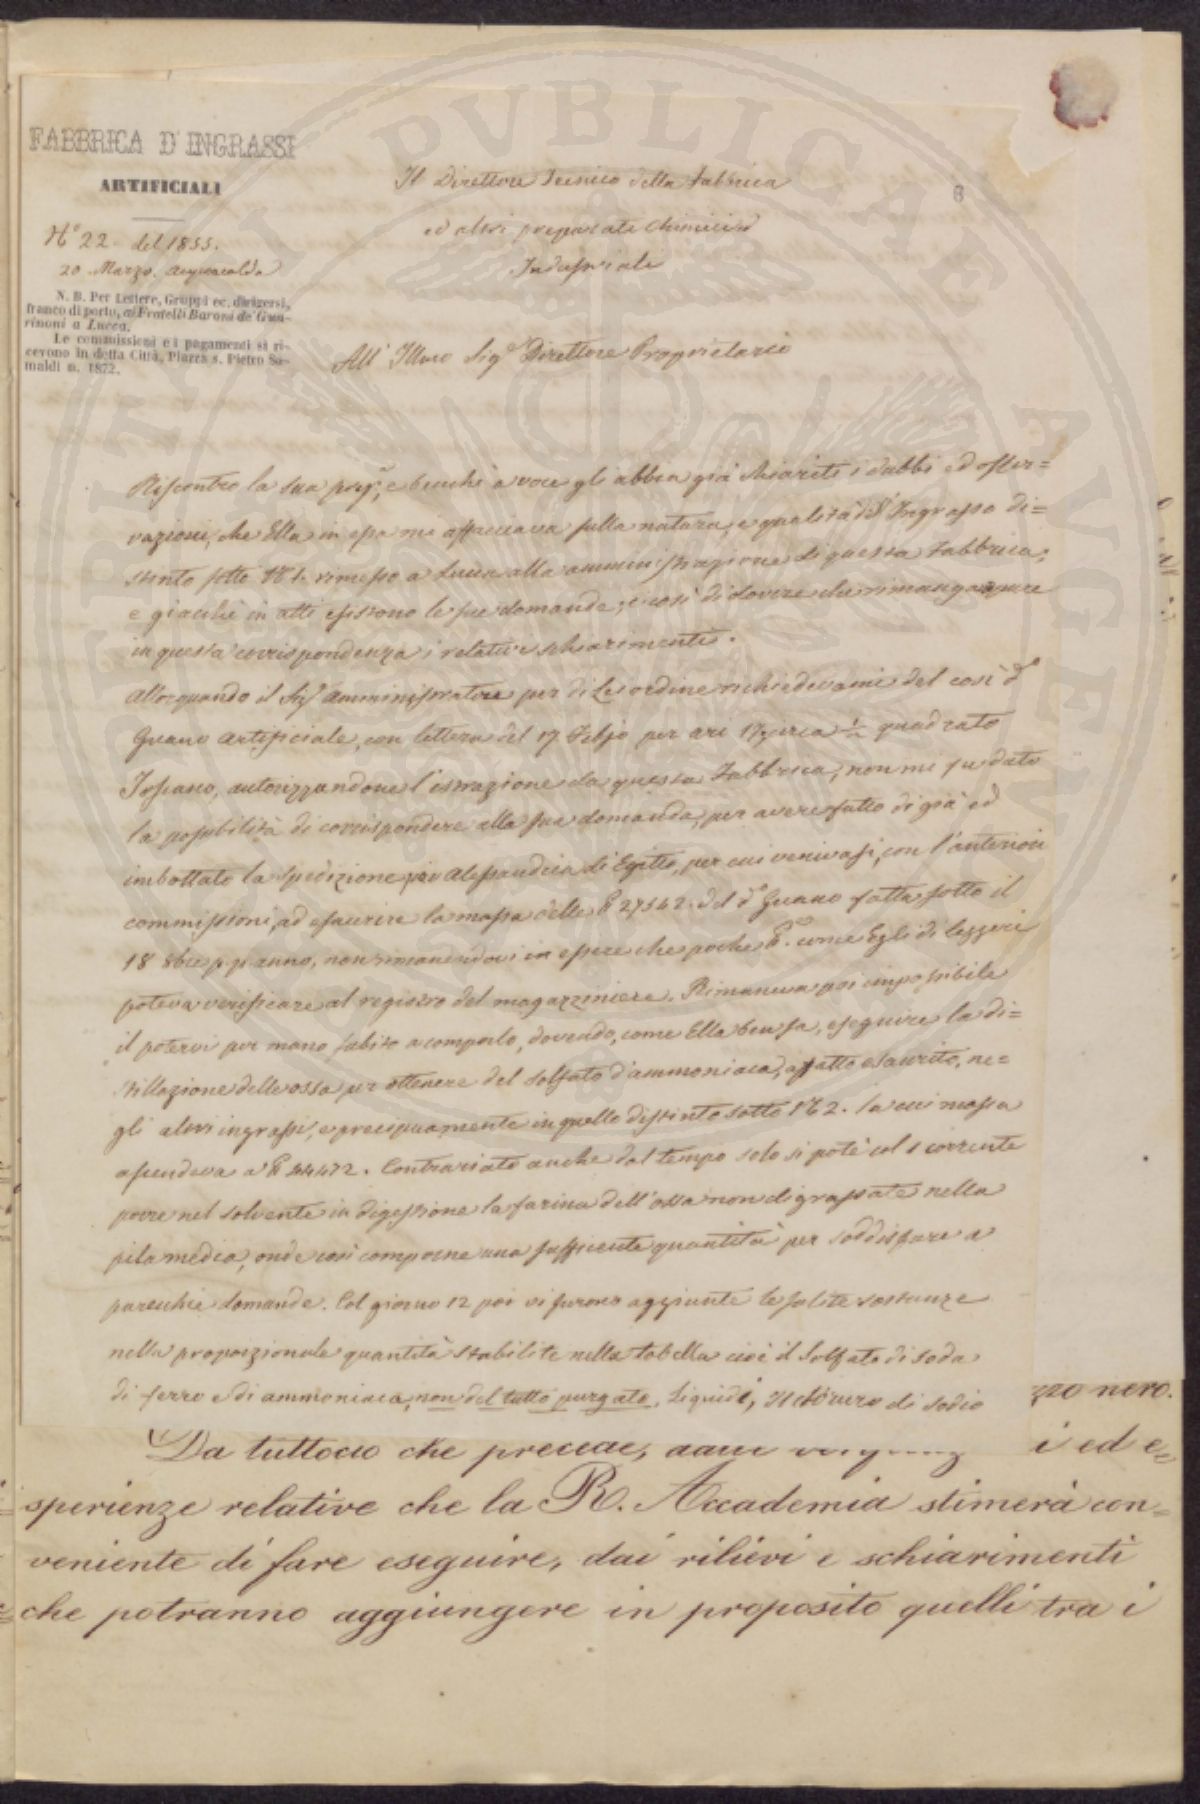 FABBRICA D'INGRASSI
ARTIFICIALI
N.º 22. del 1855.
20 Marzo. Acquacalda
N. B. Per Lettere, Gruppi ec. dirigersi,
franco di porto, ai Fratelli Baroni de' Gua-
rinoni a Lucca.
Le commissioni e i pagamenti si ri-
cevono in detta Città, Piazza s. Pietro So-
maldi n. 1872.
Il Direttore Tecnico della Fabbrica
ed altri preparati Chimici ed
Industriali
8
All' Illmo Sig.e Direttore Proprietario
Riscontro la sua e benchè a voce gli abbia già chiariti i dubbi ed osser=
vazioni, che Ella in essa mi affacciava sulla natura, e qualità dell'Ingrasso di=
stinto sotto N.º 1. rimesso a Lucca alla amministrazione di questa Fabbrica;
e giacchè in atti esistono le sue domande, è così di dovere che rimangano pure
in questa corrispondenza i relativi schiarimenti.
Allorquando il Sig.r Amministratore per di Lei ordine richiedevami del così d.º
Guano artificiale, con lettera del 17 Febjo per ari 17 circa ½ quadrato
Toscano, autorizzandone l'estrazione da questa Fabbrica, non mi fu dato
la possibilità di corrispondere alla sua domanda, per avere fatto di già ed
imbottato la spedizione per Alessandria di Egitto, per cui venivasi, con l'anteriori
commissioni, ad esaurire la massa delle ℔ 27542. del d.º Guano fatta sotto il
18 8bre p.p. anno, non rimanendovi in essere che poche ℔. come Egli di leggeri
poteva verificare al registro del magazziniere. Rimaneva poi impossibile
il potervi por mano subito a comporlo, dovendo, come Ella ben sa, eseguire la di=
stillazione delle ossa per ottenere del solfato d'ammoniaca, affatto esaurito, ne=
gli altri ingrassi, e precipuamente in quello distinto sotto N.º 2. la cui massa
ascendeva a ℔ 44472. Contrariato anche dal tempo solo si potè col 1 corrente
porre nel solvente in digestione la farina dell'ossa non digrassate nella
pila media, onde così comporne una sufficiente quantità per soddisfare a
parecchie domande. Col giorno 12 poi vi furono aggiunte le solite sostanze
nella proporzionale quantità stabilite nella tabella cioè il Solfato di soda
di ferro e di ammoniaca, non del tutto purgato, liquidi, il cloruro di sodio
zzo nero.
Da tuttociò che precede, i ed e=
sperienze relative che la R. Accademia stimerà con=
veniente di fare eseguire, dai rilievi e schiarimenti
che potranno aggiungere in proposito quelli tra i